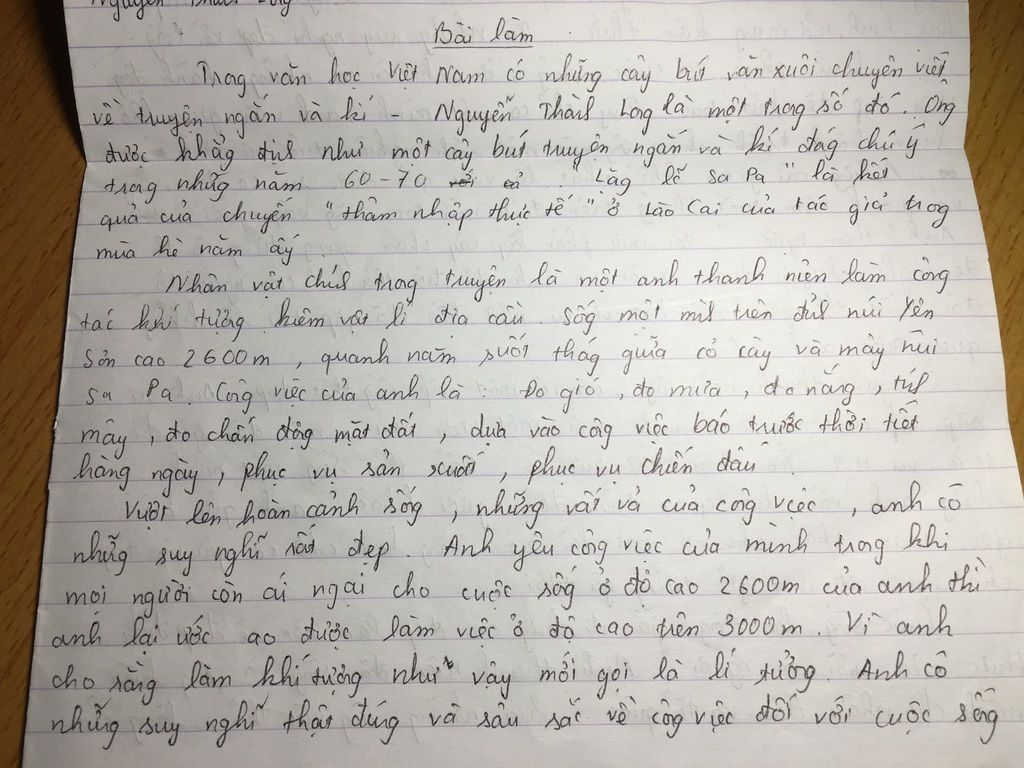 Nguyễn Thành Long
Bài làm
Trong văn học Việt Nam có những cây bút văn xuôi chuyên viết
về truyện ngắn và kí - Nguyễn Thành Long là một trong số đó. Ông
được khẳng định như một cây bút truyện ngắn và kí đáng chú ý
trong những năm 60-70. "Lặng lẽ Sa Pa" là kết
quả của chuyến "thâm nhập thực tế" ở Lào Cai của tác giả trong
mùa hè năm ấy.
Nhân vật chính trong truyện là một anh thanh niên làm công
tác khí tượng kiêm vật lí địa cầu. Sống một mình trên đỉnh núi Yên
Sơn cao 2600m, quanh năm suốt tháng giữa cỏ cây và mây núi
Sa Pa. Công việc của anh là: Đo gió, đo mưa, đo nắng, tính
mây, đo chấn động mặt đất, dựa vào công việc báo trước thời tiết
hàng ngày, phục vụ sản xuất, phục vụ chiến đấu.
Vượt lên hoàn cảnh sống, những vất vả của công việc, anh có
những suy nghĩ rất đẹp. Anh yêu công việc của mình trong khi
mọi người còn ái ngại cho cuộc sống ở độ cao 2600m của anh thì
anh lại ước ao được làm việc ở độ cao trên 3000m. Vì anh
cho rằng làm khí tượng như vậy mới gọi là lí tưởng. Anh có
những suy nghĩ thật đúng và sâu sắc về công việc đối với cuộc sống